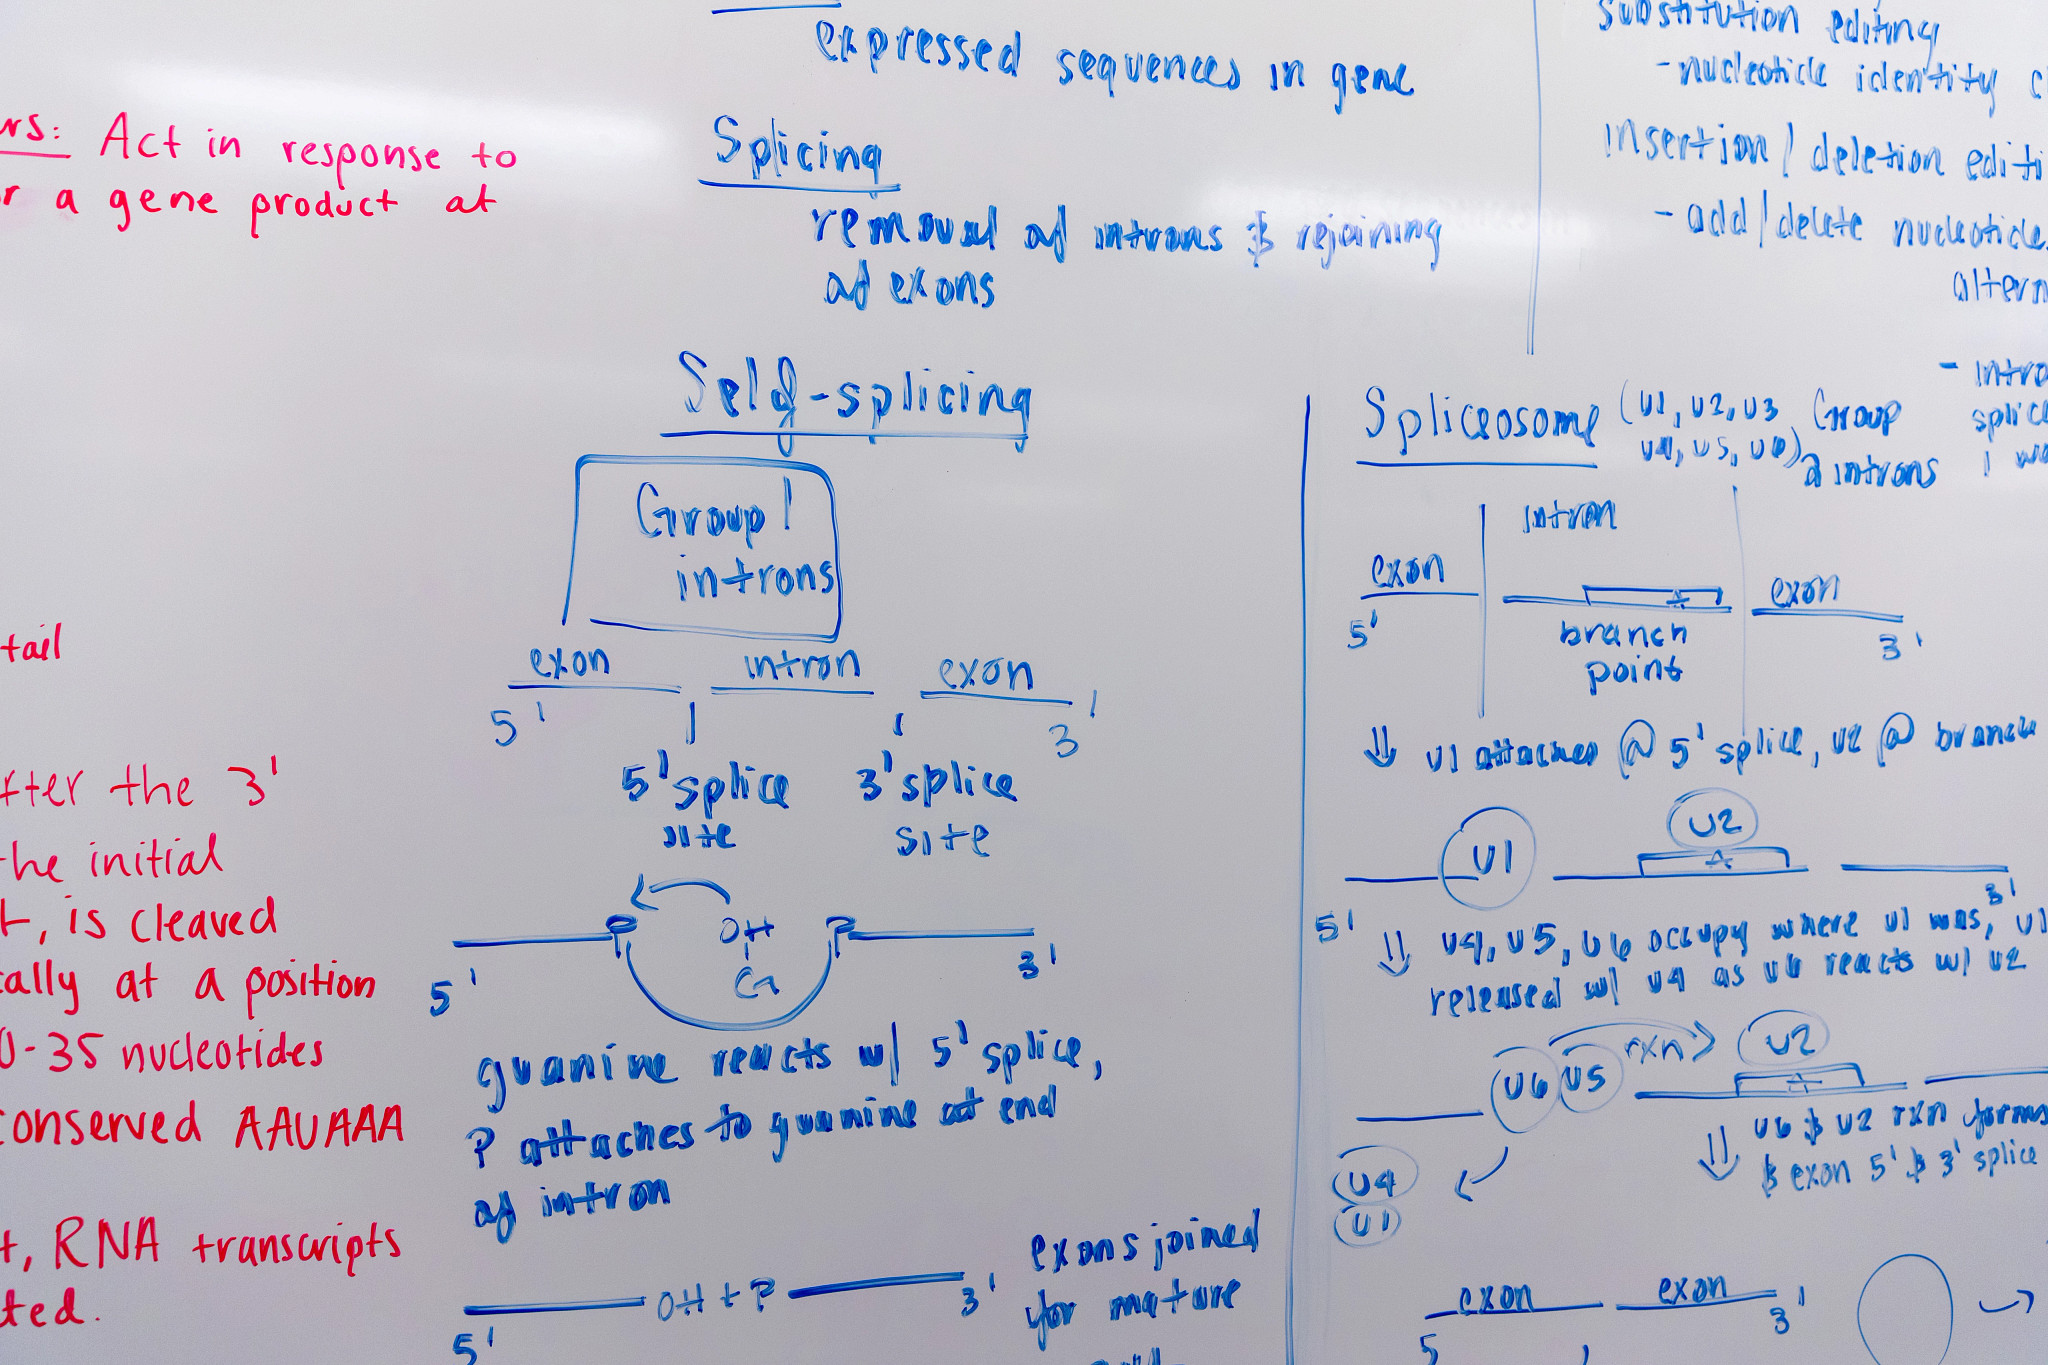 Act in response to
r a gene product at
tail
fter the 3'
the initial
t, is cleaved
cally at a position
0-35 nucleotides
conserved AAUAAA
t, RNA transcripts
ted.
expressed sequences in gene
Splicing
removal of introns & rejoining
of exons
Self-splicing
Group 1
introns
exon intron exon
5' 3'
5' splice 3' splice
site site
P OH P
G
5' 3'
guanine reacts w/ 5' splice,
P attaches to guanine at end
of intron
OH + P
5' 3'
exons joined
for mature
substitution editing
- nucleotide identity c
insertion / deletion editi
- add/delete nucleotide
altern
- intro
splice
1 wa
Spliceosome (U1, U2, U3 Group
U4, U5, U6) 2 introns
intron
exon exon
5' branch 3'
point
⇓ U1 attaches @ 5' splice, U2 @ branch
U1 U2
A
5' 3'
⇓ U4, U5, U6 occupy where U1 was, U1
released w/ U4 as U6 reacts w/ U2
U6 U5 rxn U2
A
U4
U1
⇓ U6 & U2 rxn forms
& exon 5' & 3' splice
exon exon
5 3'